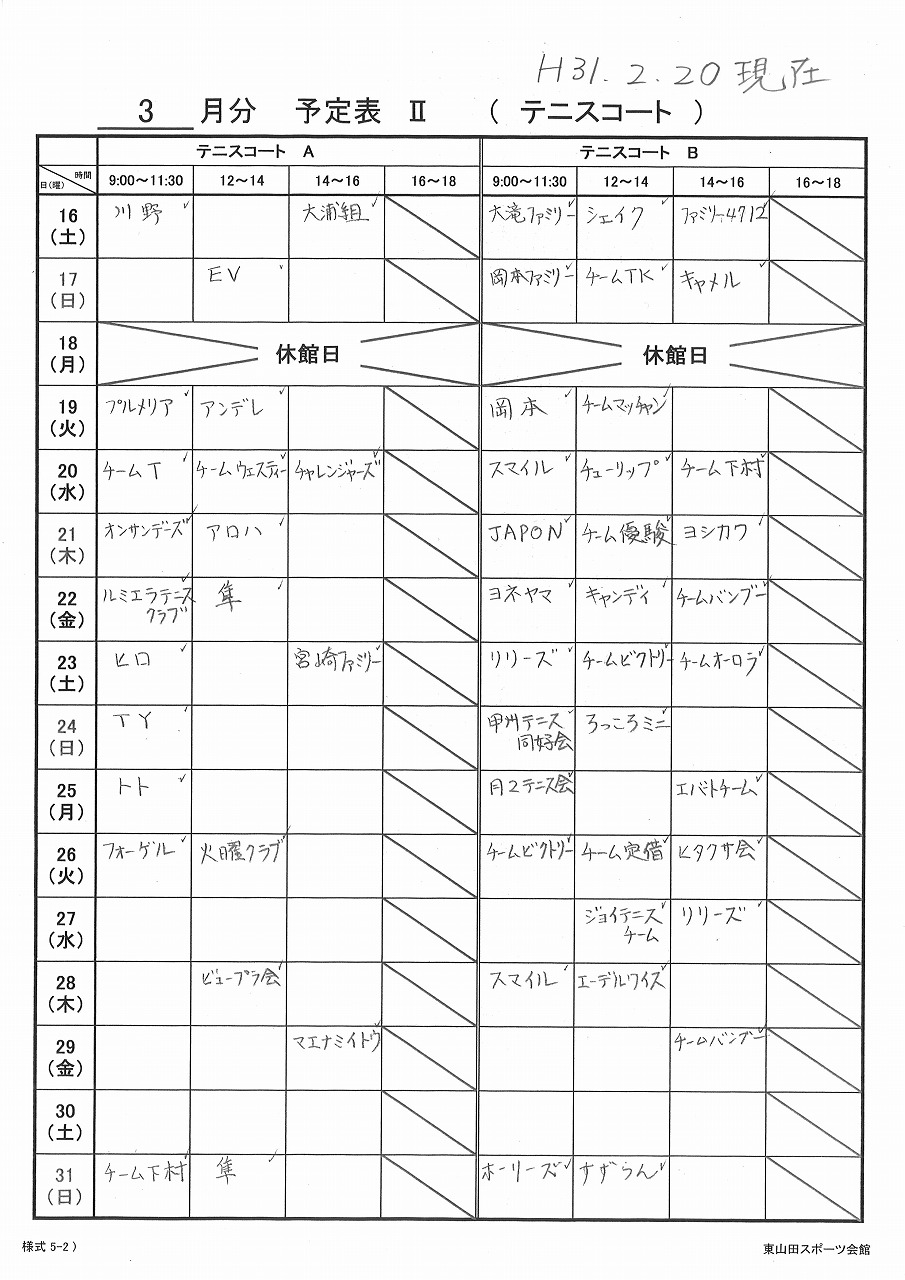 H31.2.20現在
3 月分 予定表 Ⅱ ( テニスコート )
テニスコート A テニスコート B
日(曜) 時間 9:00～11:30 12～14 14～16 16～18 9:00～11:30 12～14 14～16 16～18
16 (土) 川野 大浦組 大滝ファミリー シェイク ファミリー4712
17 (日) EV 岡本ファミリー チームTK キャメル
18 (月) 休館日 休館日
19 (火) プルメリア アンデレ 岡本 チームマッチャン
20 (水) チームT チームウェスティー チャレンジャーズ スマイル チューリップ チーム下村
21 (木) オンサンデーズ アロハ JAPON チーム優駿 ヨシカワ
22 (金) ルミエラテニスクラブ 隼 ヨネヤマ キャンディ チームバンブー
23 (土) ヒロ 宮崎ファミリー リリーズ チームビクトリー チームオーロラ
24 (日) TY 甲州テニス同好会 ろっころミニ
25 (月) トト 月2テニス会 エバトチーム
26 (火) フォーゲル 火曜クラブ チームビクトリー チーム定借 ヒタクサ会
27 (水) ジョイテニスチーム リリーズ
28 (木) ビュープラ会 スマイル エーデルワイズ
29 (金) マエナミイトウ チームバンブー
30 (土)
31 (日) チーム下村 隼 ホーリーズ すずらん
様式 5-2 ) 東山田スポーツ会館